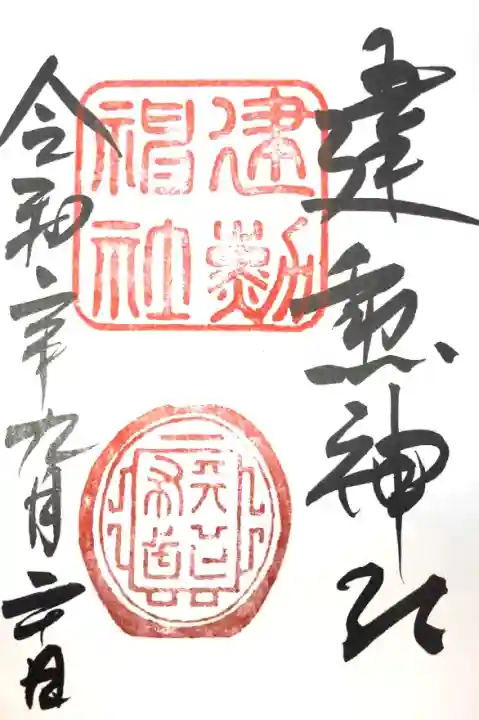 建勲神社
建勲
神社
天下布武
令和二年九月二十日